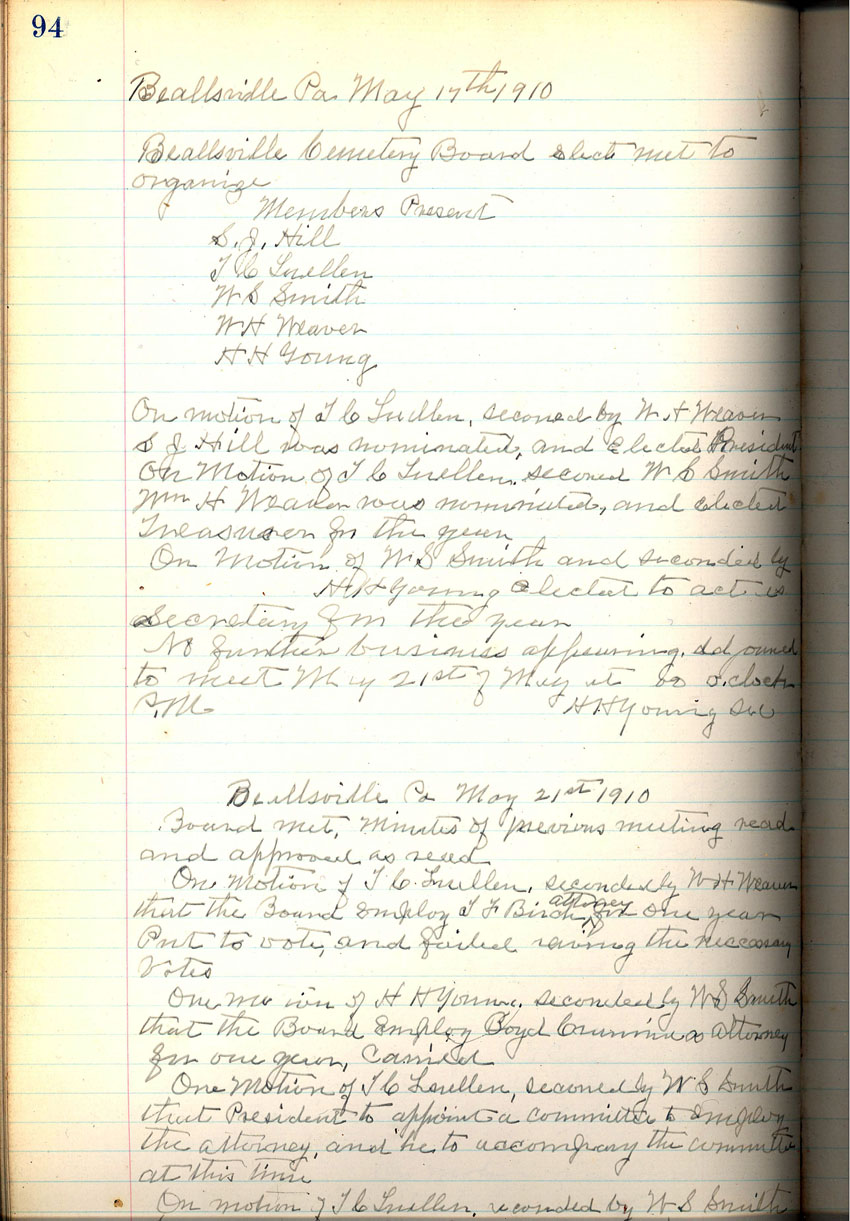 94
Beallsville Pa May 17th 1910
Beallsville Cemetery Board elect met to
organize
Members Present
S. J. Hill
T C Luellen
W S Smith
W H Weaver
H H Young
On motion of T C Luellen, seconed by W H Weaver
S J Hill was nominated, and Elected President
On Motion of T C Luellen, seconed W S Smith
Wm H Weaver was nominated, and elected
Treasurer for the year
On Motion of W S Smith and seconded by
H H Young Elected to act as
Secretary for the year
No further business appearing. Adjourned
to meet May 21st of May at o.clock
P.M. H H Young Sec
Beallsville Pa May 21st 1910
Board met, Minutes of previous meeting read
and approved as read
On Motion of T. C. Luellen, seconded by W H Weaver
attorney
that the Board Employ T F Birch, for one year
Put to vote, and failed the necessary
Votes
One motion of H H Young, seconded by W S Smith
that the Board Employ Boyd Crumrine as Attorney
for one year, Carried
One Motion of T C Luellen, seconed by W S Smith
that President to appoint a committee to Employ
the attorney, and he to accompany the committee
at this time
On motion of T C Luellen, seconded by W S Smith